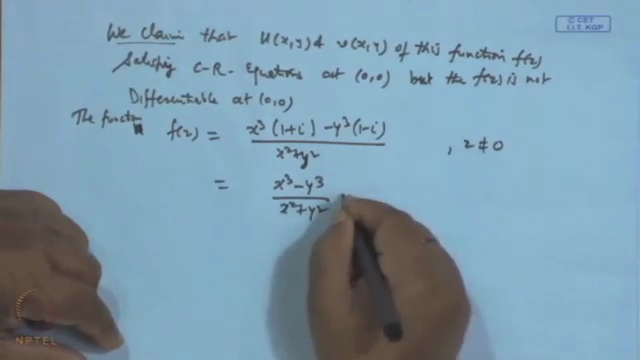 © CET
I.I.T. KGP
We claim that u(x,y) & v(x,y) of this function f(z)
Satisfies C-R. Equations at (0,0) but the f(z) is not
Differentiable at (0,0)
The funct f(z) = x³(1+i) - y³(1-i) / x²+y² , z ≠ 0
= x³ - y³ / x²+y²
NPTEL